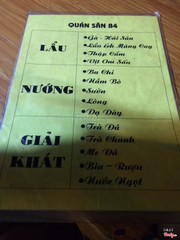 QUÁN SÂN 84
LẨU
• Gà - Hải Sản
• Lẩu Ếch Măng Cay
• Thập Cẩm
• Vịt Om Sấu
NƯỚNG
• Ba Chỉ
• Nầm Bò
• Sườn
• Lòng
• Dạ Dày
GIẢI KHÁT
• Trà Đá
• Trà Chanh
• Mơ Đá
• Bia - Rượu
• Nước Ngọt